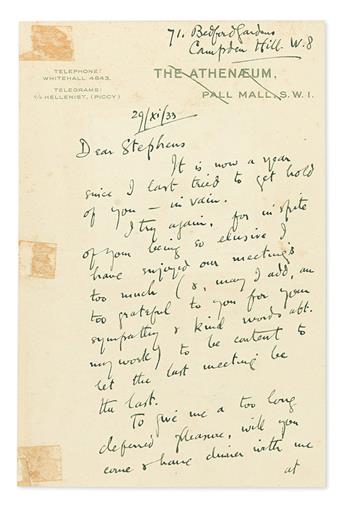 71, Bedford Gardens
Campden Hill. W.8
TELEPHONE:
WHITEHALL 4843.
TELEGRAMS:
C/O HELLENIST, (PICCY)
THE ATHENÆUM,
PALL MALL, S.W.1.
29/xi/33
Dear Stephens
It is now a year
since I last tried to get hold
of you – in vain.
I try again, for in spite
of your being so elusive I
have enjoyed our meetings
too much (&, may I add, am
too grateful to you for your
sympathy & kind words abt.
my work) to be content to
let the last meeting be
the last.
To give me a too long
deferred pleasure, will you
come & have dinner with me
at